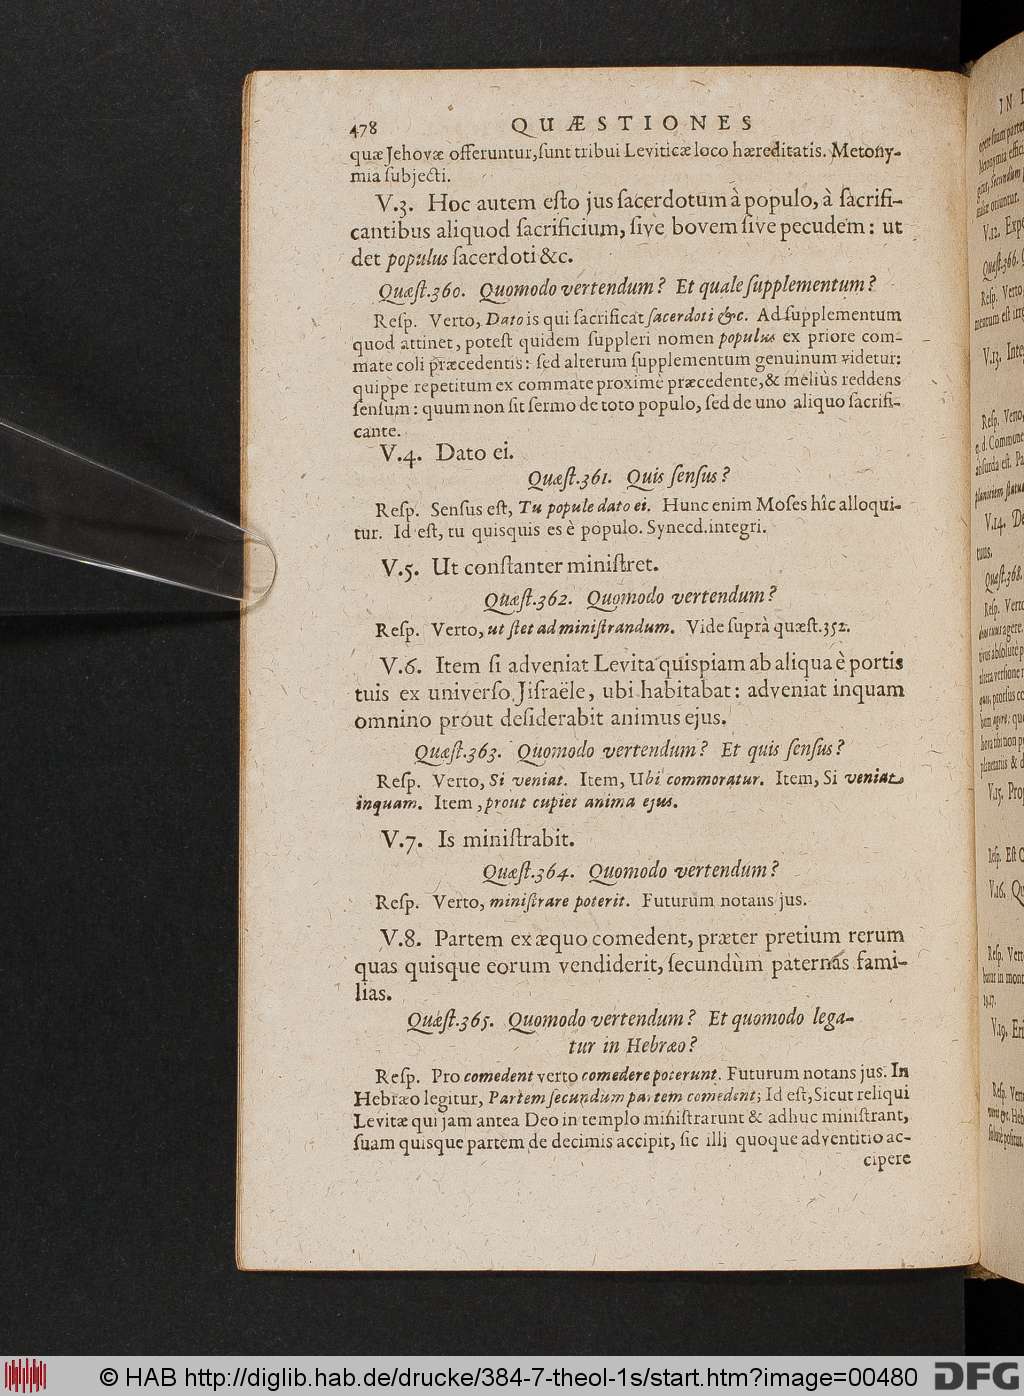 478 QUÆSTIONES
quæ Jehovæ offeruntur, ſunt tribui Leviticæ loco hæreditatis. Metony-
mia ſubjecti.
V.3. Hoc autem eſto jus ſacerdotum à populo, à ſacrifi-
cantibus aliquod ſacrificium, ſive bovem ſive pecudem: ut
det populus ſacerdoti &c.
Quæſt.360. Quomodo vertendum? Et quale ſupplementum?
Reſp. Verto, Dato is qui ſacrificat ſacerdoti &c. Ad ſupplementum
quod attinet, poteſt quidem ſuppleri nomen populus ex priore com-
mate coli præcedentis: ſed alterum ſupplementum genuinum videtur:
quippe repetitum ex commate proximè præcedente, & meliùs reddens
ſenſum: quum non ſit ſermo de toto populo, ſed de uno aliquo ſacrifi-
cante.
V.4. Dato ei.
Quæſt.361. Quis ſenſus?
Reſp. Senſus eſt, Tu popule dato ei. Hunc enim Moſes hîc alloqui-
tur. Id eſt, tu quisquis es è populo. Synecd. integri.
V.5. Ut conſtanter miniſtret.
Quæſt.362. Quomodo vertendum?
Reſp. Verto, ut ſtet ad miniſtrandum. Vide ſuprà quæſt.352.
V.6. Item ſi adveniat Levita quispiam ab aliqua è portis
tuis ex univerſo Jiſraële, ubi habitabat: adveniat inquam
omnino prout deſiderabit animus ejus.
Quæſt.363. Quomodo vertendum? Et quis ſenſus?
Reſp. Verto, Si veniat. Item, Ubi commoratur. Item, Si veniat
inquam. Item, prout cupiet anima ejus.
V.7. Is miniſtrabit.
Quæſt.364. Quomodo vertendum?
Reſp. Verto, miniſtrare poterit. Futurum notans jus.
V.8. Partem ex æquo comedent, præter pretium rerum
quas quisque eorum vendiderit, ſecundùm paternas fami-
lias.
Quæſt.365. Quomodo vertendum? Et quomodo lega-
tur in Hebræo?
Reſp. Pro comedent verto comedere poterunt. Futurum notans jus. In
Hebræo legitur, Partem ſecundum partem comedent; Id eſt, Sicut reliqui
Levitæ qui jam antea Deo in templo miniſtrarunt & adhuc miniſtrant,
ſuam quisque partem de decimis accipit, ſic illi quoque adventitio ac-
cipere
IN
V.12. Exp
Quæſt.366.
Reſp. Verto
V.13. Inte
Reſp. Verto,
V.14. De
tuus.
Quæſt.368.
Reſp. Verto
V.15. Pro
Reſp. Eſt
V.16. Qu
Reſp. Vert
19.17.
V.19. Eri
© HAB http://diglib.hab.de/drucke/384-7-theol-1s/start.htm?image=00480
DFG